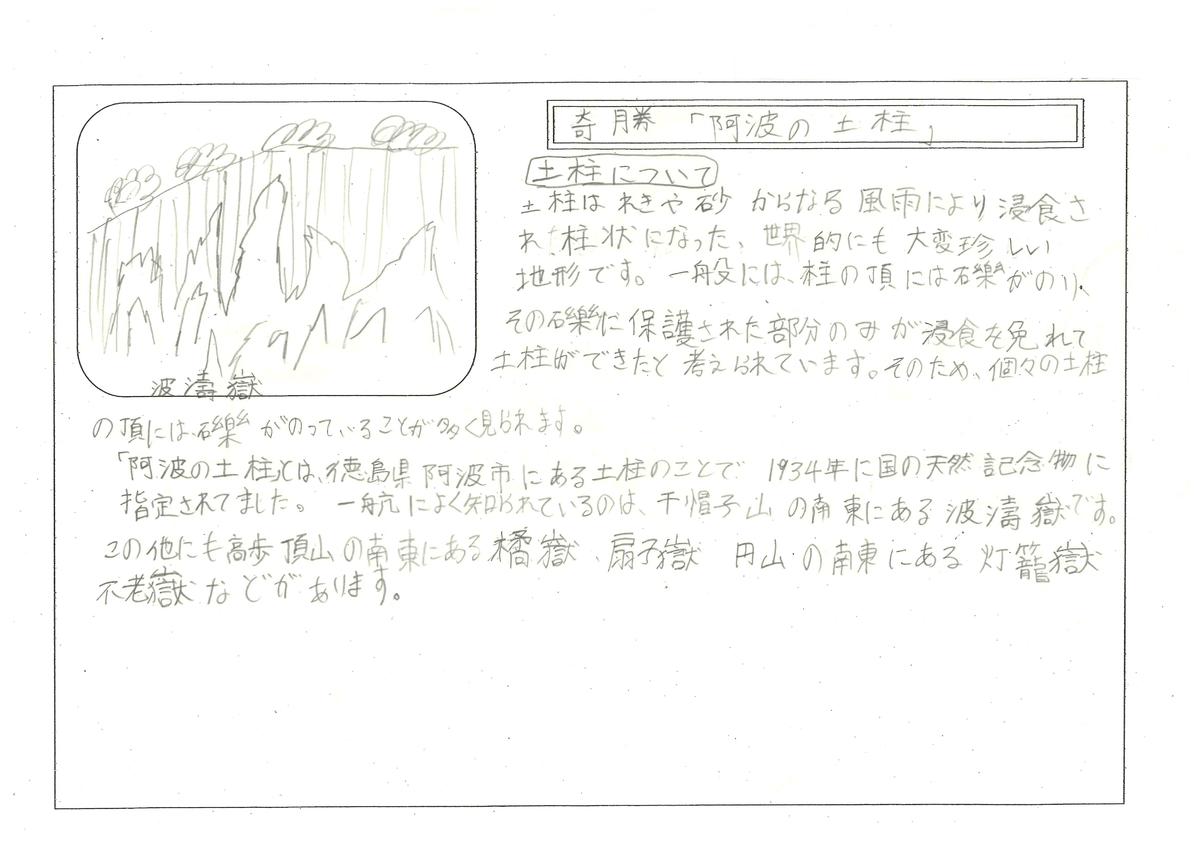 奇勝「阿波の土柱」
土柱について
土柱は れきや 砂 からなる 風雨により 浸食さ
れ 柱状になった、世界的にも 大変珍しい
地形です。一般には、柱の頂には礫がのり、
その礫に保護された部分のみが浸食を免れて
土柱ができたと考えられています。そのため、個々の土柱
の頂には、礫がのっていることが多く見られます。
「阿波の土柱」とは、徳島県阿波市にある土柱のことで 1934年に国の天然記念物に
指定されてました。一般によく知られているのは、千帽子山の南東にある波濤嶽です。
この他にも高歩頂山の南東にある橘嶽、扇子嶽 円山の南東にある灯籠嶽
不老嶽などがあります。
波濤嶽